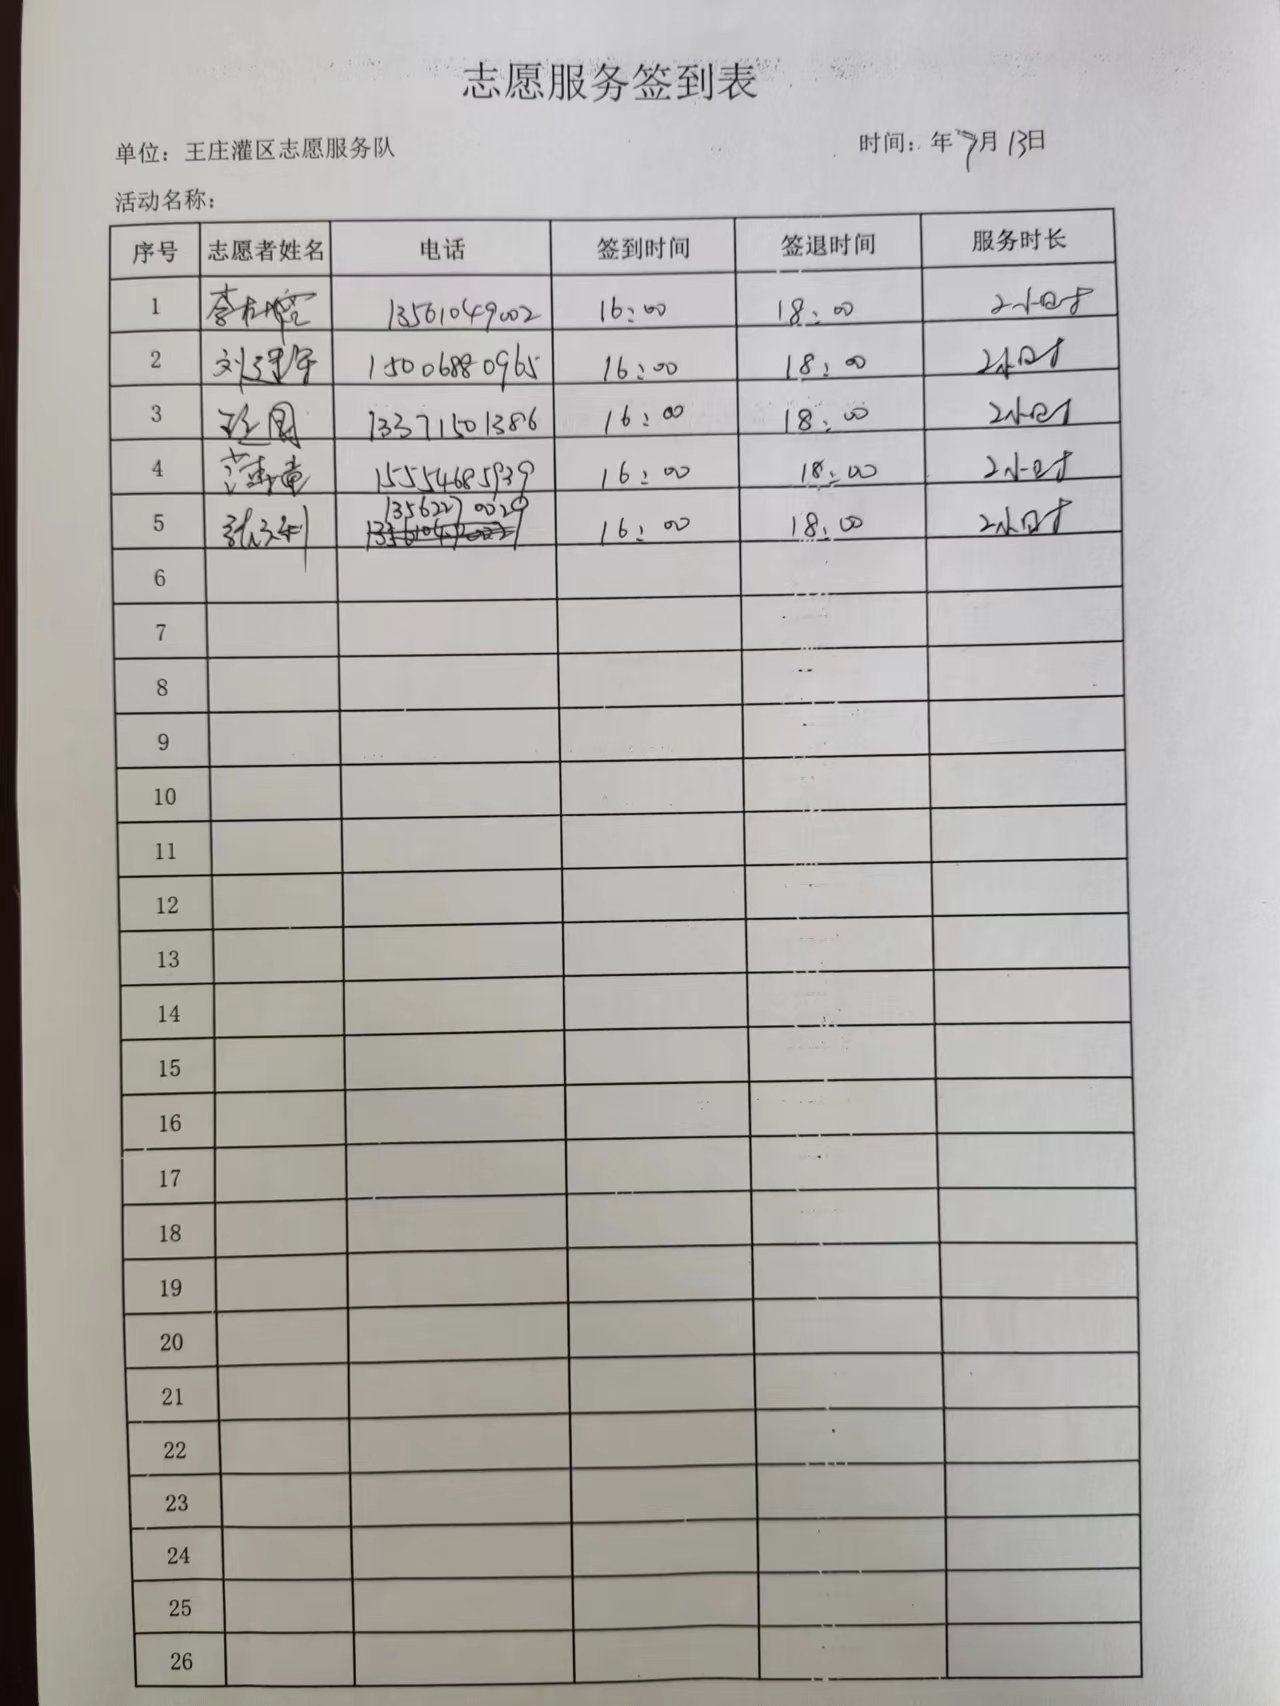 志愿服务签到表
单位：王庄灌区志愿服务队 时间：年7月13日
活动名称：
序号 志愿者姓名 电话 签到时间 签退时间 服务时长
1 13561049002 16:00 18:00 2小时
2 15006880965 16:00 18:00 2小时
3 13371501386 16:00 18:00 2小时
4 15554685939 16:00 18:00 2小时
5 13562270029 16:00 18:00 2小时
6
7
8
9
10
11
12
13
14
15
16
17
18
19
20
21
22
23
24
25
26